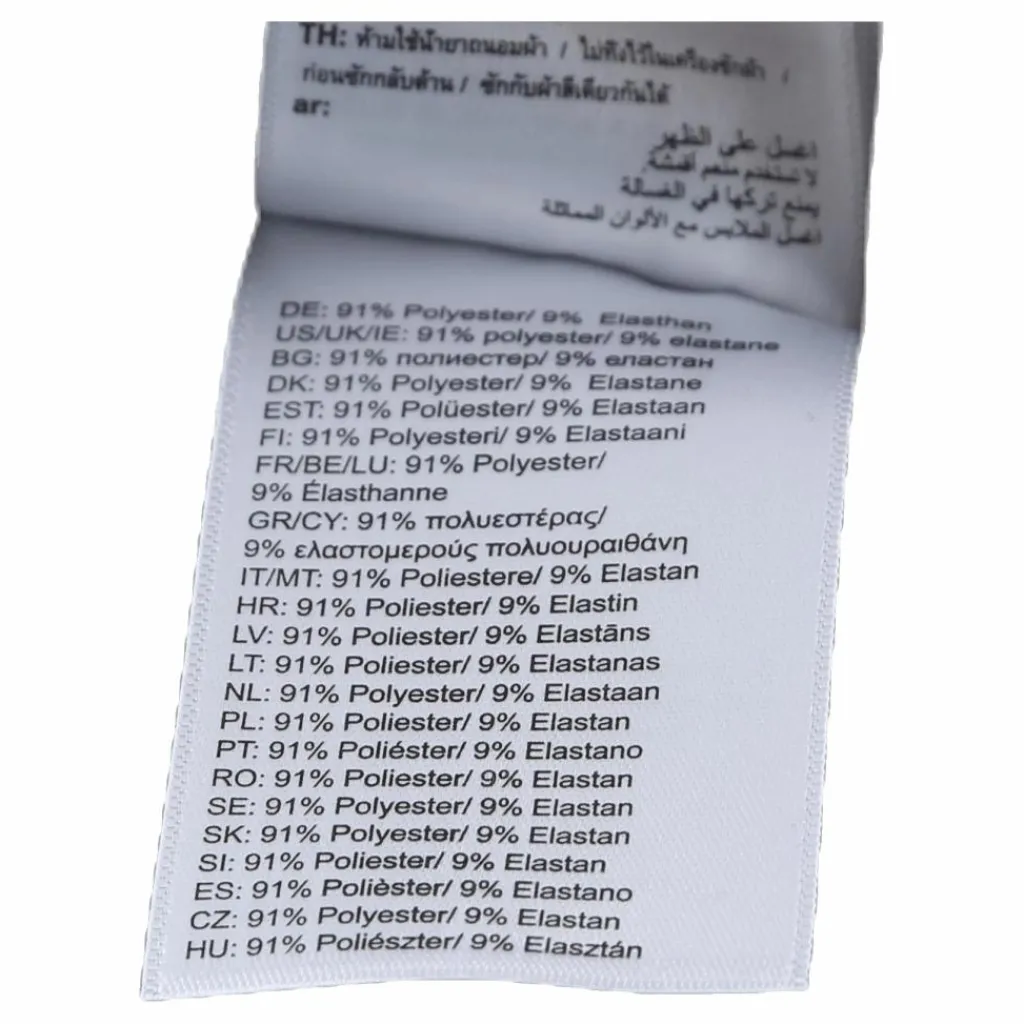 TH: ห้ามใช้น้ำยาถนอมผ้า / ไม่ทิ้งไว้ในเครื่องซักผ้า /
ก่อนซักกลับด้าน / ซักกับผ้าสีเดียวกันได้
ar:
اغسل على الظهر
لا تستخدم منعم أقمشة
يمنع تركها في الغسالة
اغسل الملابس مع الألوان المماثلة
DE: 91% Polyester/ 9% Elasthan
US/UK/IE: 91% polyester/ 9% elastane
BG: 91% полиестер/ 9% еластан
DK: 91% Polyester/ 9% Elastane
EST: 91% Polüester/ 9% Elastaan
FI: 91% Polyesteri/ 9% Elastaani
FR/BE/LU: 91% Polyester/
9% Élasthanne
GR/CY: 91% πολυεστέρας/
9% ελαστομερούς πολυουραιθάνη
IT/MT: 91% Poliestere/ 9% Elastan
HR: 91% Poliester/ 9% Elastin
LV: 91% Poliester/ 9% Elastāns
LT: 91% Poliester/ 9% Elastanas
NL: 91% Polyester/ 9% Elastaan
PL: 91% Poliester/ 9% Elastan
PT: 91% Poliéster/ 9% Elastano
RO: 91% Poliester/ 9% Elastan
SE: 91% Polyester/ 9% Elastan
SK: 91% Polyester/ 9% Elastan
SI: 91% Poliester/ 9% Elastan
ES: 91% Polièster/ 9% Elastano
CZ: 91% Polyester/ 9% Elastan
HU: 91% Poliészter/ 9% Elasztán